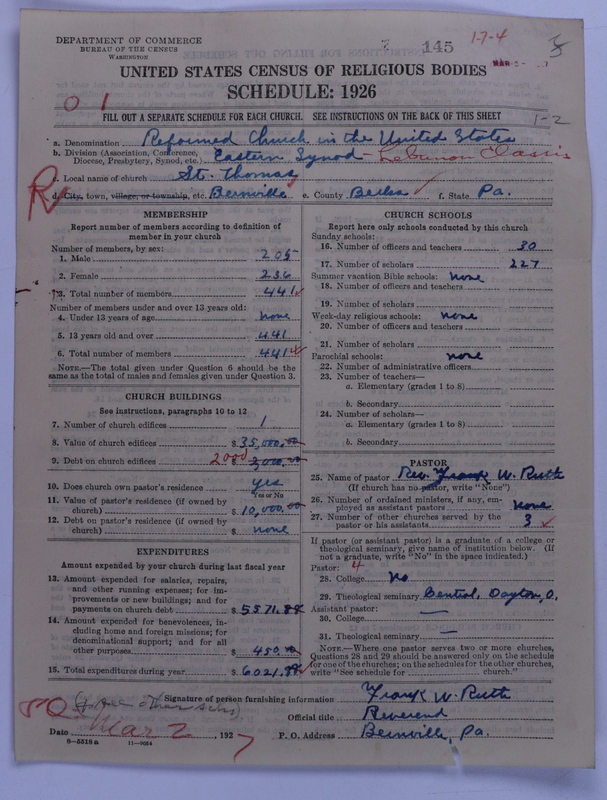 DEPARTMENT OF COMMERCE
BUREAU OF THE CENSUS
WASHINGTON
145
1-7-4
UNITED STATES CENSUS OF RELIGIOUS BODIES
SCHEDULE: 1926
0 1
FILL OUT A SEPARATE SCHEDULE FOR EACH CHURCH. SEE INSTRUCTIONS ON THE BACK OF THIS SHEET
1-2
a. Denomination Reformed Church in the United States
b. Division (Association, Conference, Diocese, Presbytery, Synod, etc.) Eastern Synod - Lebanon Classis
c. Local name of church St. Thomas
d. City, town, village, or township, etc. Bernville e. County Berks f. State Pa.
R
MEMBERSHIP
Report number of members according to definition of
member in your church
Number of members, by sex:
1. Male 205
2. Female 236
3. Total number of members 441
Number of members under and over 13 years old:
4. Under 13 years of age none
5. 13 years old and over 441
6. Total number of members 441
NOTE.—The total given under Question 6 should be the
same as the total of males and females given under Question 3.
CHURCH BUILDINGS
See instructions, paragraphs 10 to 12
7. Number of church edifices 1
8. Value of church edifices $ 35,000.00
9. Debt on church edifices 2000 $ 2,000.00
10. Does church own pastor's residence yes
Yes or No
11. Value of pastor's residence (if owned by
church) $ 10,000.00
12. Debt on pastor's residence (if owned by
church) $ none
EXPENDITURES
Amount expended by your church during last fiscal year
13. Amount expended for salaries, repairs,
and other running expenses; for im-
provements or new buildings; and for
payments on church debt $ 5571.88
14. Amount expended for benevolences, in-
cluding home and foreign missions; for
denominational support; and for all
other purposes $ 450.00
15. Total expenditures during year $ 6021.88
CHURCH SCHOOLS
Report here only schools conducted by this church
Sunday schools:
16. Number of officers and teachers 30
17. Number of scholars 227
Summer vacation Bible schools: none
18. Number of officers and teachers
19. Number of scholars
Week-day religious schools: none
20. Number of officers and teachers
21. Number of scholars
Parochial schools: none
22. Number of administrative officers
23. Number of teachers—
a. Elementary (grades 1 to 8)
b. Secondary
24. Number of scholars—
a. Elementary (grades 1 to 8)
b. Secondary
PASTOR
25. Name of pastor Rev. Frank W. Ruth
(If church has no pastor, write "None")
26. Number of ordained ministers, if any, em-
ployed as assistant pastors none
27. Number of other churches served by the
pastor or his assistants 3
If pastor (or assistant pastor) is a graduate of a college or
theological seminary, give name of institution below. (If
not a graduate, write "No" in the space indicated.)
Pastor: 4
28. College No
29. Theological seminary Central, Dayton, O.
Assistant pastor:
30. College —
31. Theological seminary —
NOTE.—Where one pastor serves two or more churches,
Questions 28 and 29 should be answered only on the schedule
for one of the churches; on the schedules for the other churches,
write "See schedule for church."
Signature of person furnishing information Frank W. Ruth
Official title Reverend
Date Mar 2, 1927 P. O. Address Bernville, Pa.
11—9054